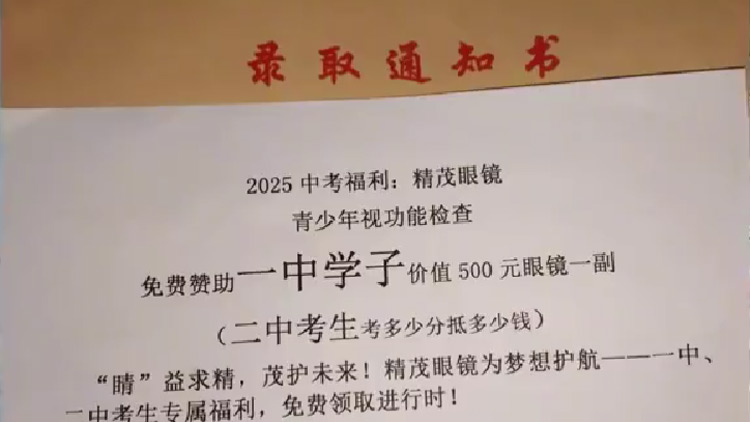 录取通知书
2025中考福利：精茂眼镜
青少年视功能检查
免费赞助一中学子价值500元眼镜一副
（二中考生考多少分抵多少钱）
“睛”益求精，茂护未来！精茂眼镜为梦想护航——一中、
二中考生专属福利，免费领取进行时！